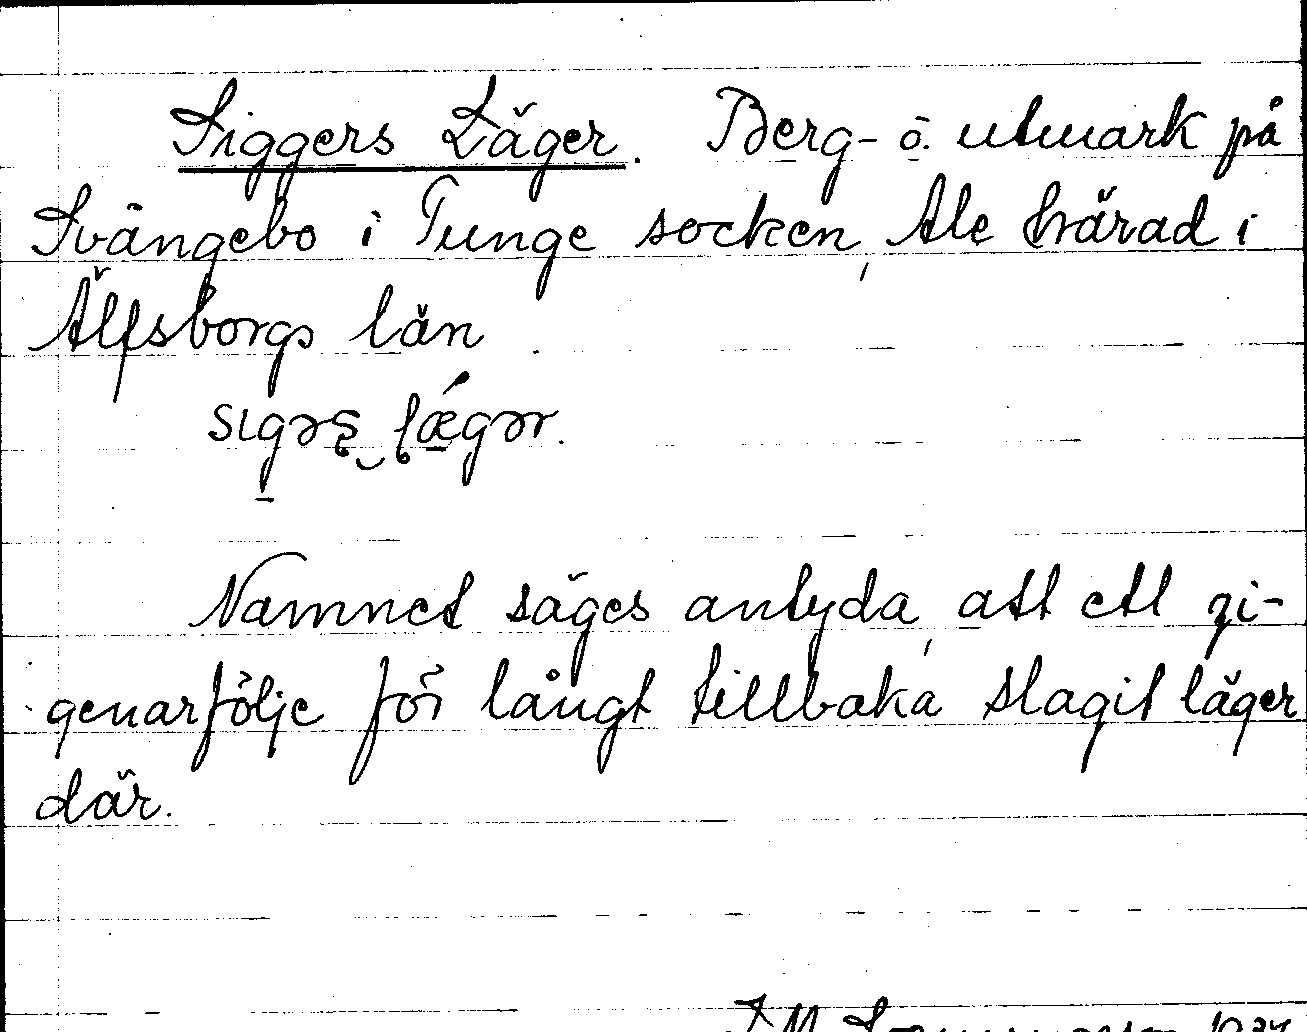 Siggers Läger. Berg- o. utmark på
Svängebo i Tunge socken, Ale härad i
Älfsborgs län
sigəş‿lǽgər.
Namnet säges antyda, att ett zi-
genarfölje för långt tillbaka slagit läger
där.